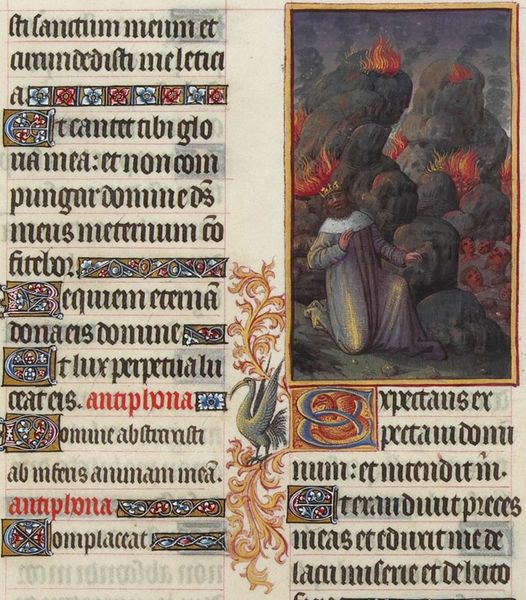 sti sanctum meum et
circundedisti me letici
a.
Et cantet tibi glo
ria mea: et non com
pungar domine ds
meus ineternum co
fitebor
Requiem eternā
dona eis domine
Et lux perpetua lu
ceat eis. antiphona
Domine abstraxisti
ab inferis animam meā.
antiphona
Complaceat
Expectans ex
pectavi domi
num: et intendit m.
Et exaudivit preces
meas et eduxit me de
lacu miserie et de luto